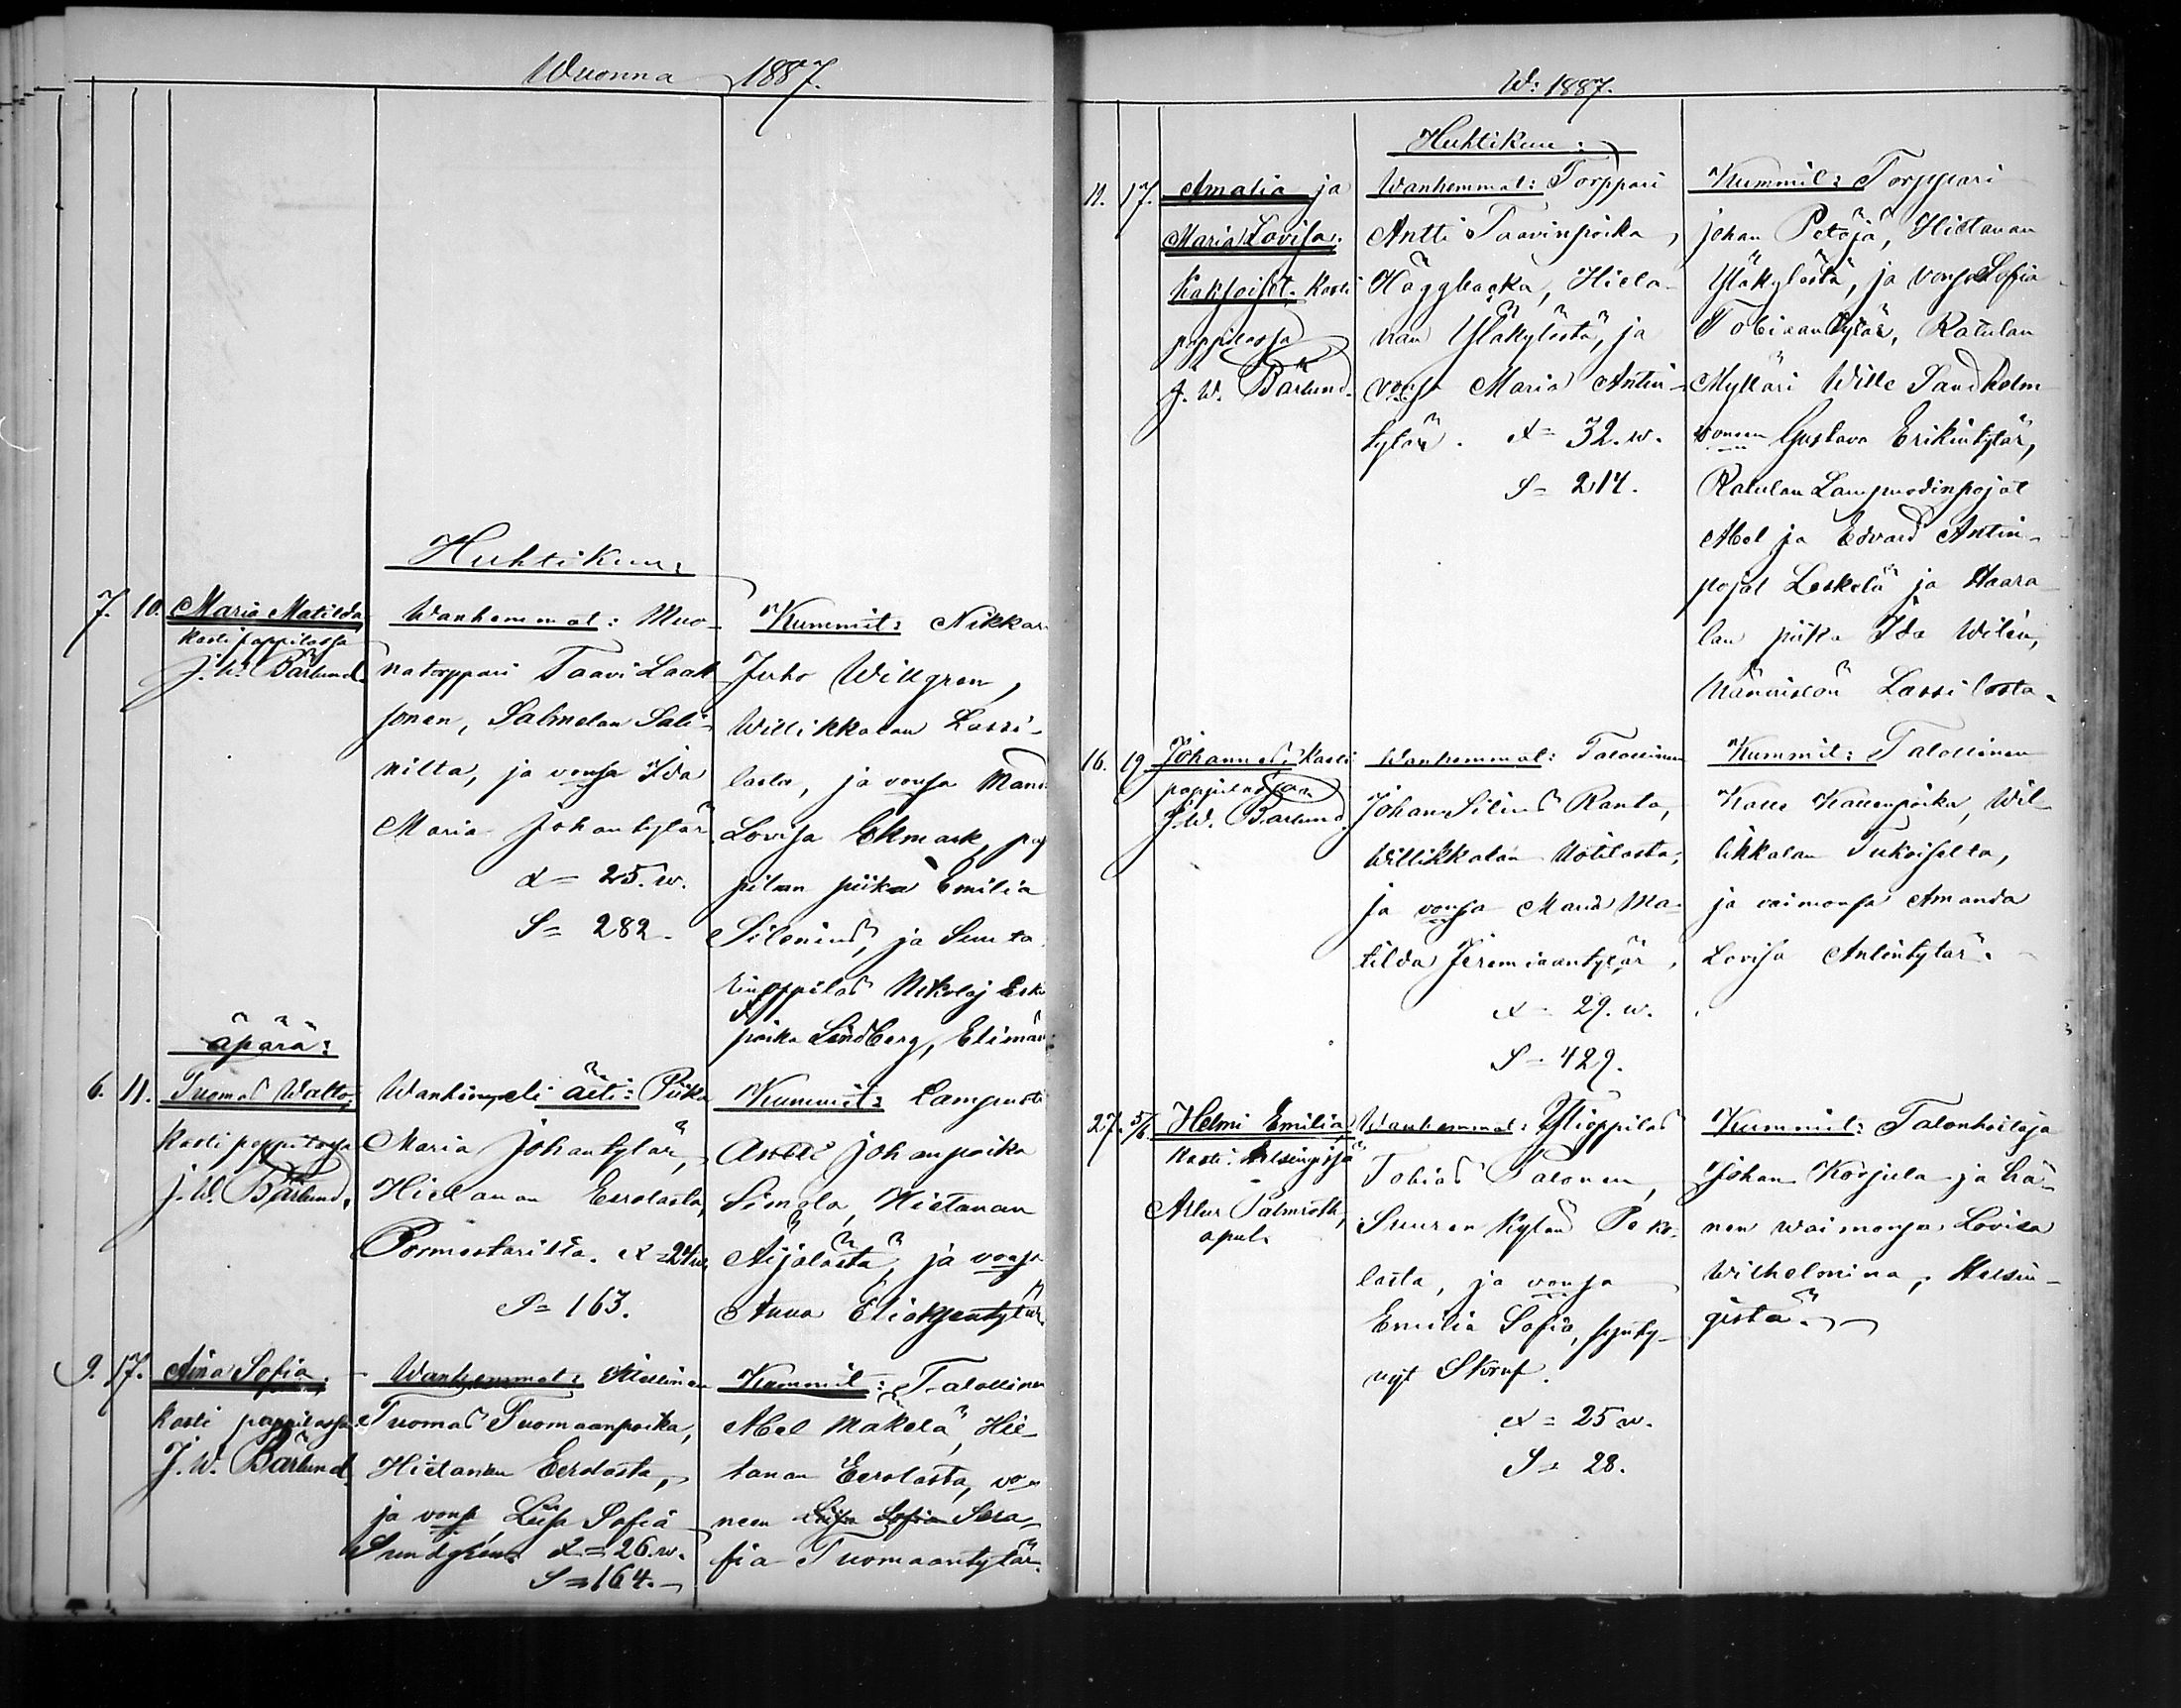 Wuonna 1887.
Huhtikuu:
7. 10. Maria Matilda
kasti pappilassa
J. W. Bärlund.
Wanhemmat: Muo-
natorppari Taavi Laak
sonen, Salmelan Sali-
nilta, ja vonsa Ida
Maria Johantytär
x = 25. w.
S = 282.
Kummit: Nikkar
Juho Willgren,
Willikkalan Lassi-
lasta, ja vonsa Mand
Lovisa Ekmark, pap
pilan piika Emilia
Silenius, ja Suuta
rinoppilas Nikolaj Erk
poika Lindberg, Elimäe
äpärä:
6. 11. Tuomas Walto,
kasti pappilassa
J. W. Bärlund.
Wanhin eli äiti: Piika
Maria Johantytär,
Hietanan Eerolasta,
Pormestarilta. x = 24 w.
S = 163.
Kummit: Lampuoti
Antti Johanpoika
Simola, Hietanan
Äijälästä, ja vonsa
Anna Eliaksentytär.
9. 17. Aina Sofia.
kasti pappilassa
J. W. Bärlund
Wanhemmat:
Tuomas Tuomaanpoika,
Hietanan Eerolasta,
ja vonsa Liisa Sofia
Sundgren. x = 26. w.
S = 164.
Kummit: Talollinen
Abel Mäkelä, Hie-
tanan Eerolasta, vo
neen Liisa Sofia Sera-
fia Tuomaantytär.
W: 1887.
Huhtikuu:
11. 17. Amalia ja
Maria Lovisa.
Kaksoiset. Kasti
pappilassa
J. W. Bärlund.
Wanhemmat: Torppari
Antti Taavinpoika,
Häggbacka, Hieta-
nan Yläkylästä, ja
vonsa Maria Antin-
tytär. x = 32. w.
S = 214.
Kummit: Torppari
Johan Petäjä, Hietanan
Yläkylästä, ja vonsa Sofia
Tobiaantytär, Ratulan
Mylläri Wille Sandholm
voneen Gustava Erikintytär,
Ratulan Lampuodinpojat
Abel ja Edvard Antin-
pojat Leskelä ja Haara-
lan piika Ida Wilén,
Männistön Lassilasta.
16. 19 Johannes. Kasti
pappilassa
J. W. Bärlund.
Wanhemmat: Talollinen
Johan Silius Ranta,
Willikkalan Uotilasta,
ja vonsa Maria Ma-
tilda Jeremiaantytär,
x = 29. w.
S = 429.
Kummit: Talollinen
Kalle Kallenpoika, Wil-
likkalan Tukoisella,
ja vaimonsa Amanda
Lovisa Antintytär.
27. 5/6. Helmi Emilia,
kasti. Helsingissä
Artur Palmroth,
apul.
Wanhemmat: Ylioppilas
Tobias Salonen,
Suuren kylän Peko-
lasta, ja vonsa
Emilia Sofia, synty-
nyt Skoruf.
x = 25 w.
S = 28.
Kummit: Talonhoitaja
Johan Korjula ja hä-
nen waimonsa Lovisa
Wilhelmina, Helsin-
gistä.